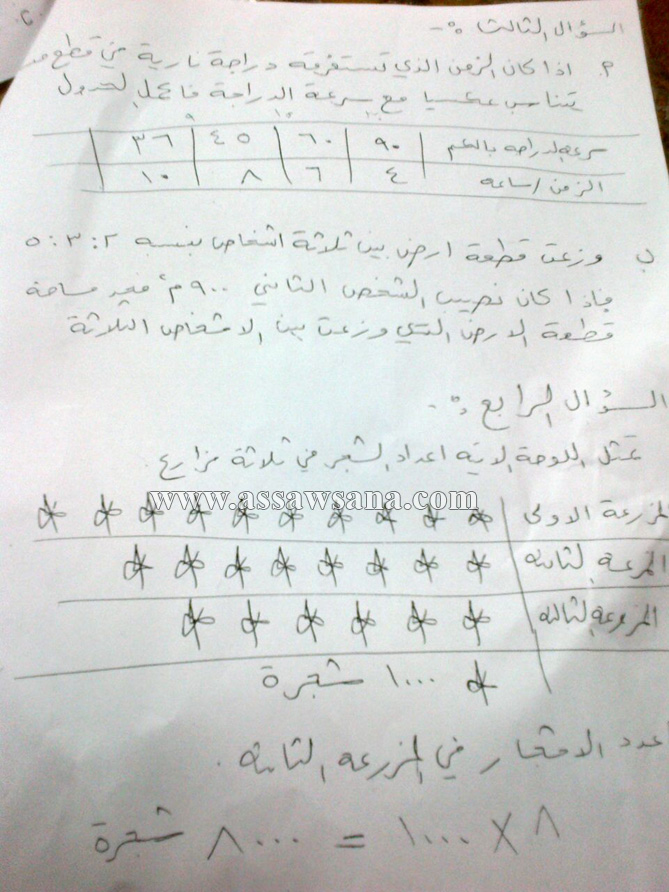 السؤال الثالث :-
أ. اذا كان الزمن الذي تستغرقه دراجة نارية من قطع
يتناسب عكسيا مع سرعة الدراجة فاكمل الجدول
سرعة الدراجه بالكم | ٩٠ | ٦٠ | ٤٥ | ٣٦
الزمن / ساعه | ٤ | ٦ | ٨ | ١٠
ب وزعت قطعة ارض بين ثلاثة اشخاص بنسبه ٢ : ٣ : ٥
فاذا كان نصيب الشخص الثاني ٩٠٠ م٢ فجد مساحة
قطعة الارض التي وزعت بين الاشخاص الثلاثة
السؤال الرابع :-
تمثل اللوحة الاتيه اعداد الشجر في ثلاثة مزارع.
www.assawsana.com
المزرعة الاولى
المزرعة الثانيه
المزرعه الثالثه
١٠٠٠ شجرة
عدد الاشجار في المزرعه الثانيه.
٨ × ١٠٠٠ = ٨٠٠٠ شجرة